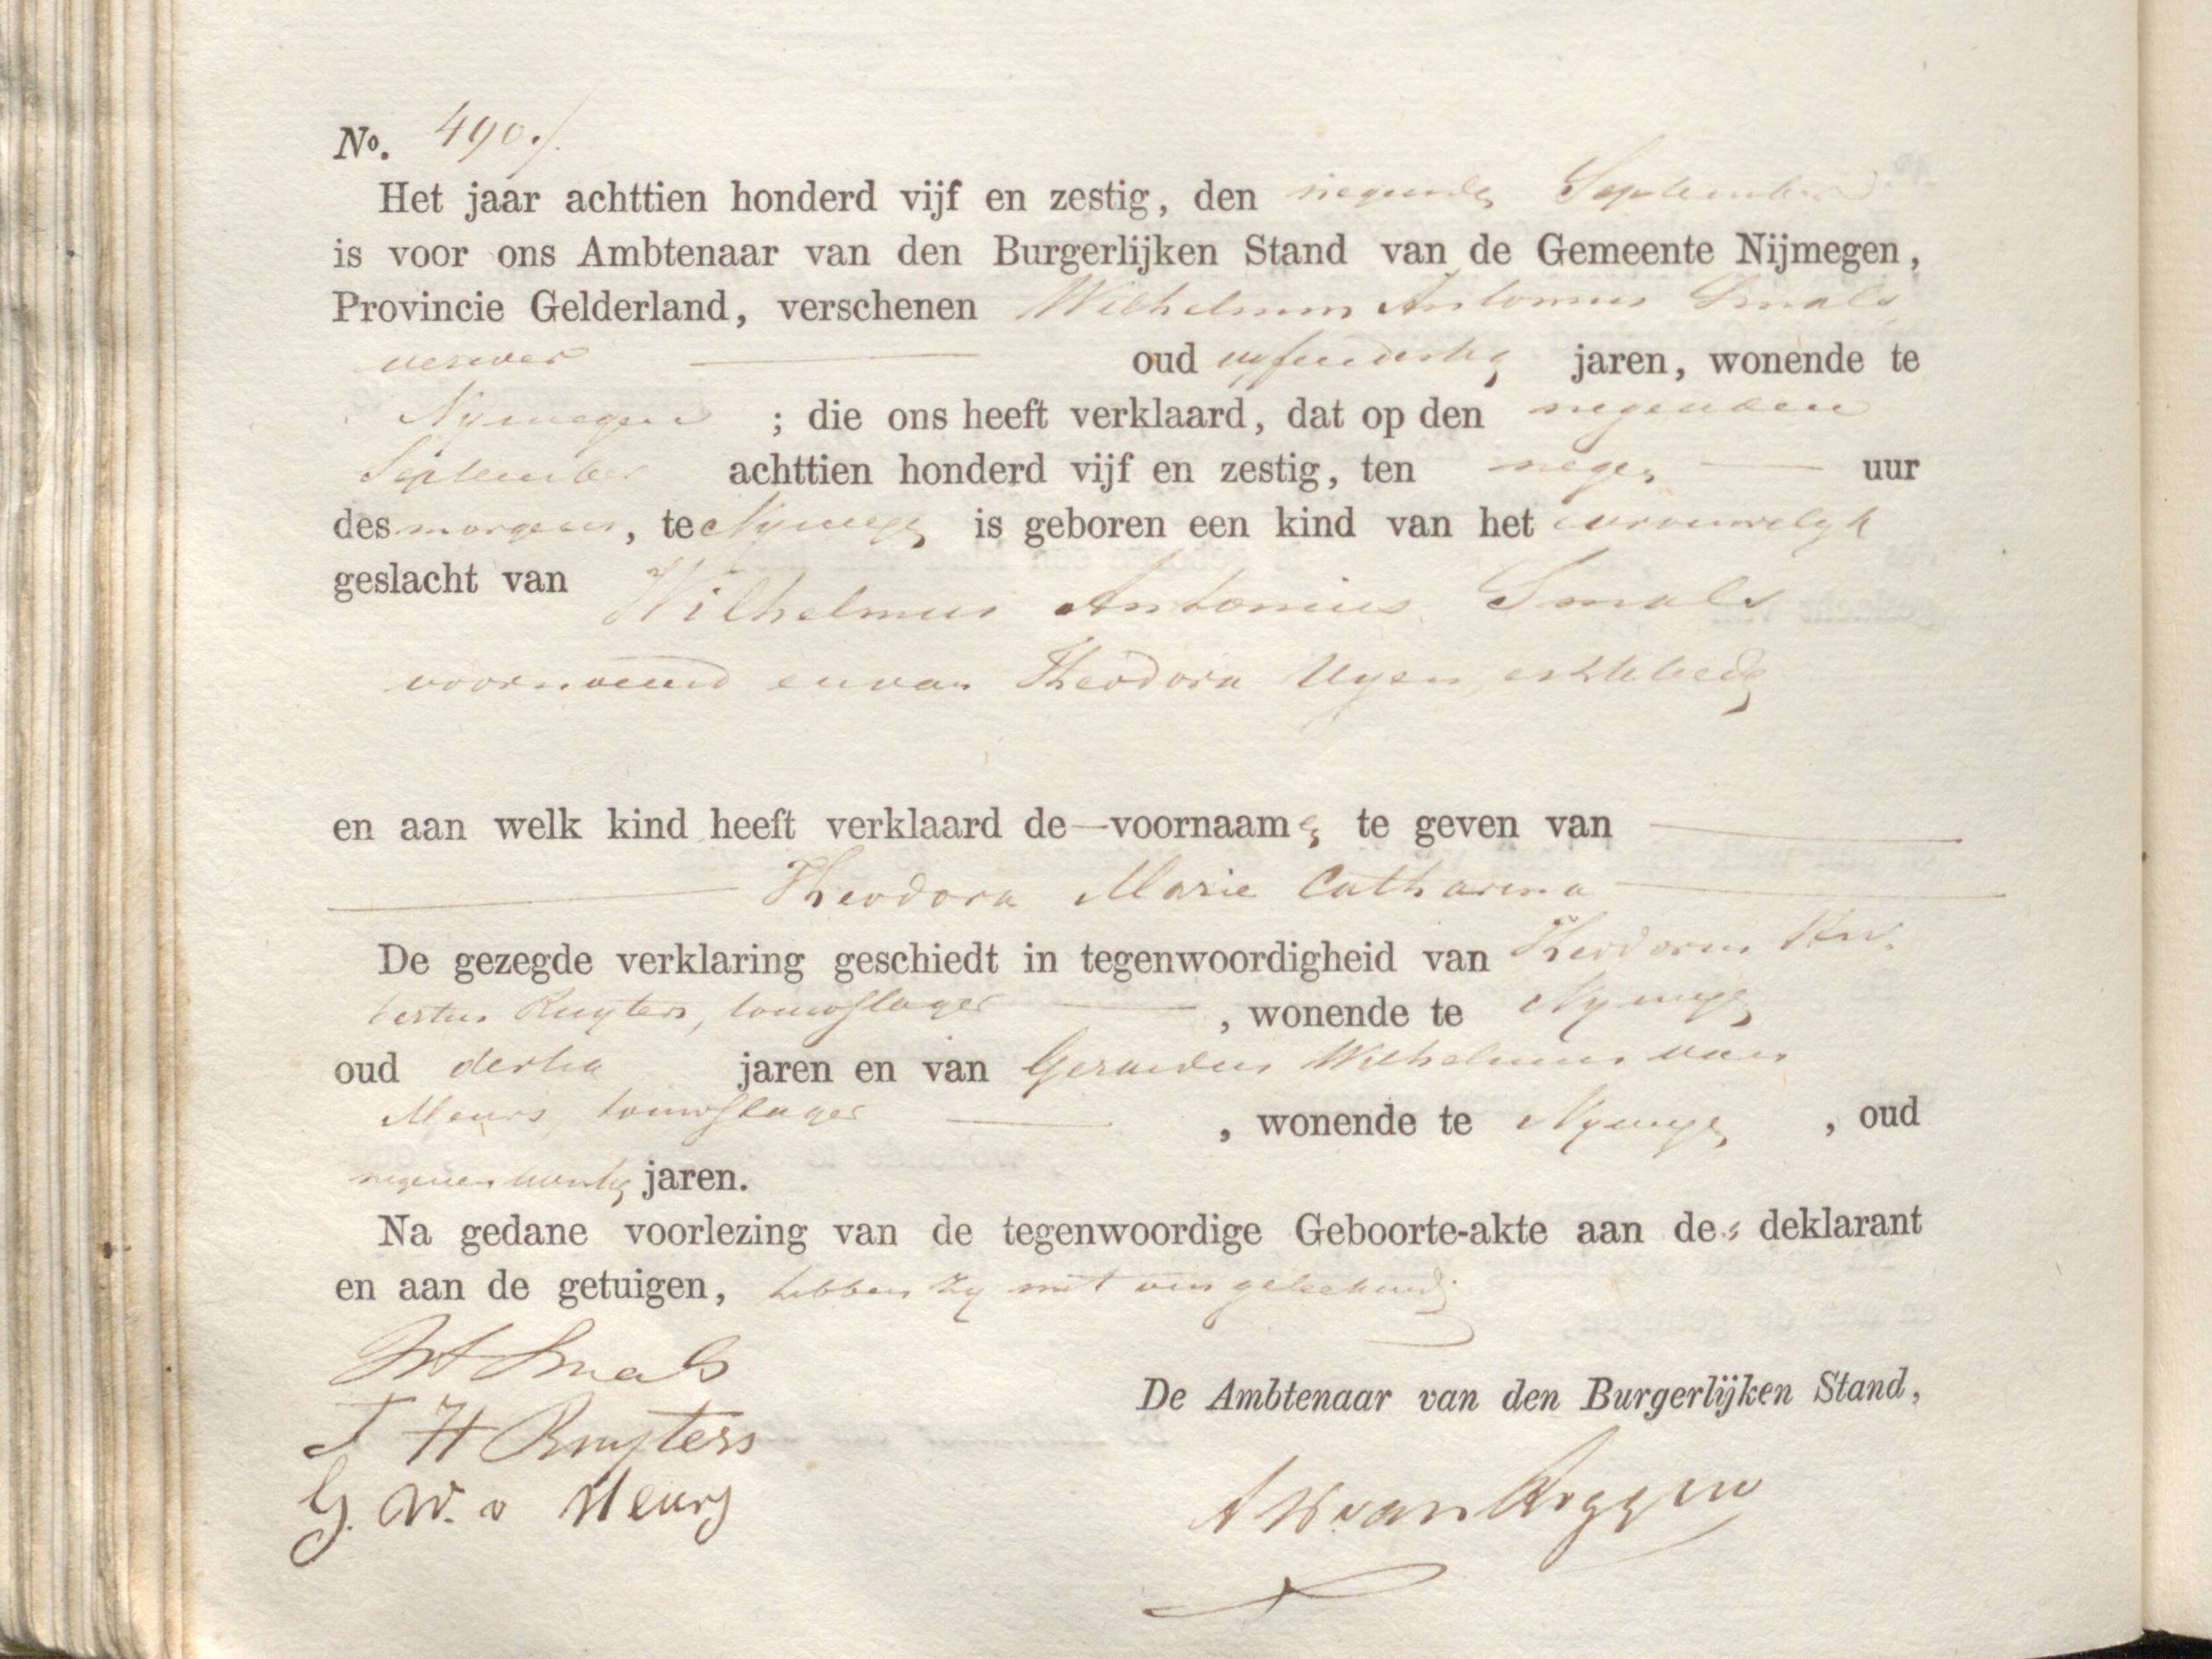 No. 490./.
Het jaar achttien honderd vijf en zestig, den negenden September
is voor ons Ambtenaar van den Burgerlijken Stand van de Gemeente Nijmegen,
Provincie Gelderland, verschenen Wilhelmus Antonius Smals,
verwer oud vyfendertig jaren, wonende te
Nymegen ; die ons heeft verklaard, dat op den negenden
September achttien honderd vijf en zestig, ten negen uur
des morgens, te Nymegen is geboren een kind van het vrouwelyk
geslacht van Wilhelmus Antonius Smals
voornoemd en van Theodora Uyen, echtelieden
en aan welk kind heeft verklaard de voornaamen te geven van
Theodora Marie Catharina
De gezegde verklaring geschiedt in tegenwoordigheid van Theodorus Hu-
bertus Ruyters, touwslager , wonende te Nymegen
oud dertig jaren en van Gerardus Wilhelmus van
Meurs, touwslager , wonende te Nymegen , oud
negenentwintig jaren.
Na gedane voorlezing van de tegenwoordige Geboorte-akte aan den deklarant
en aan de getuigen, hebben zy met ons geteekend.
WA Smals
T H Ruyters
De Ambtenaar van den Burgerlijken Stand,
G. W. v Meurs